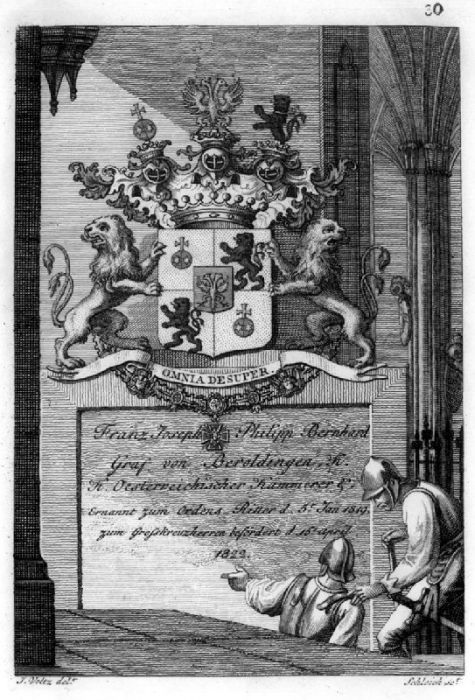 30
OMNIA DESUPER.
Franz Joseph Philipp Bernhard
Graf von Beroldingen, K.
K. Oesterreichischer Kammerer &.
Ernannt zum Ordens-Ritter d. 5t Jan 1819.
zum Großkreuzherren befördert d. 15t April
1822.
J. Veltz delt
Schleich sct